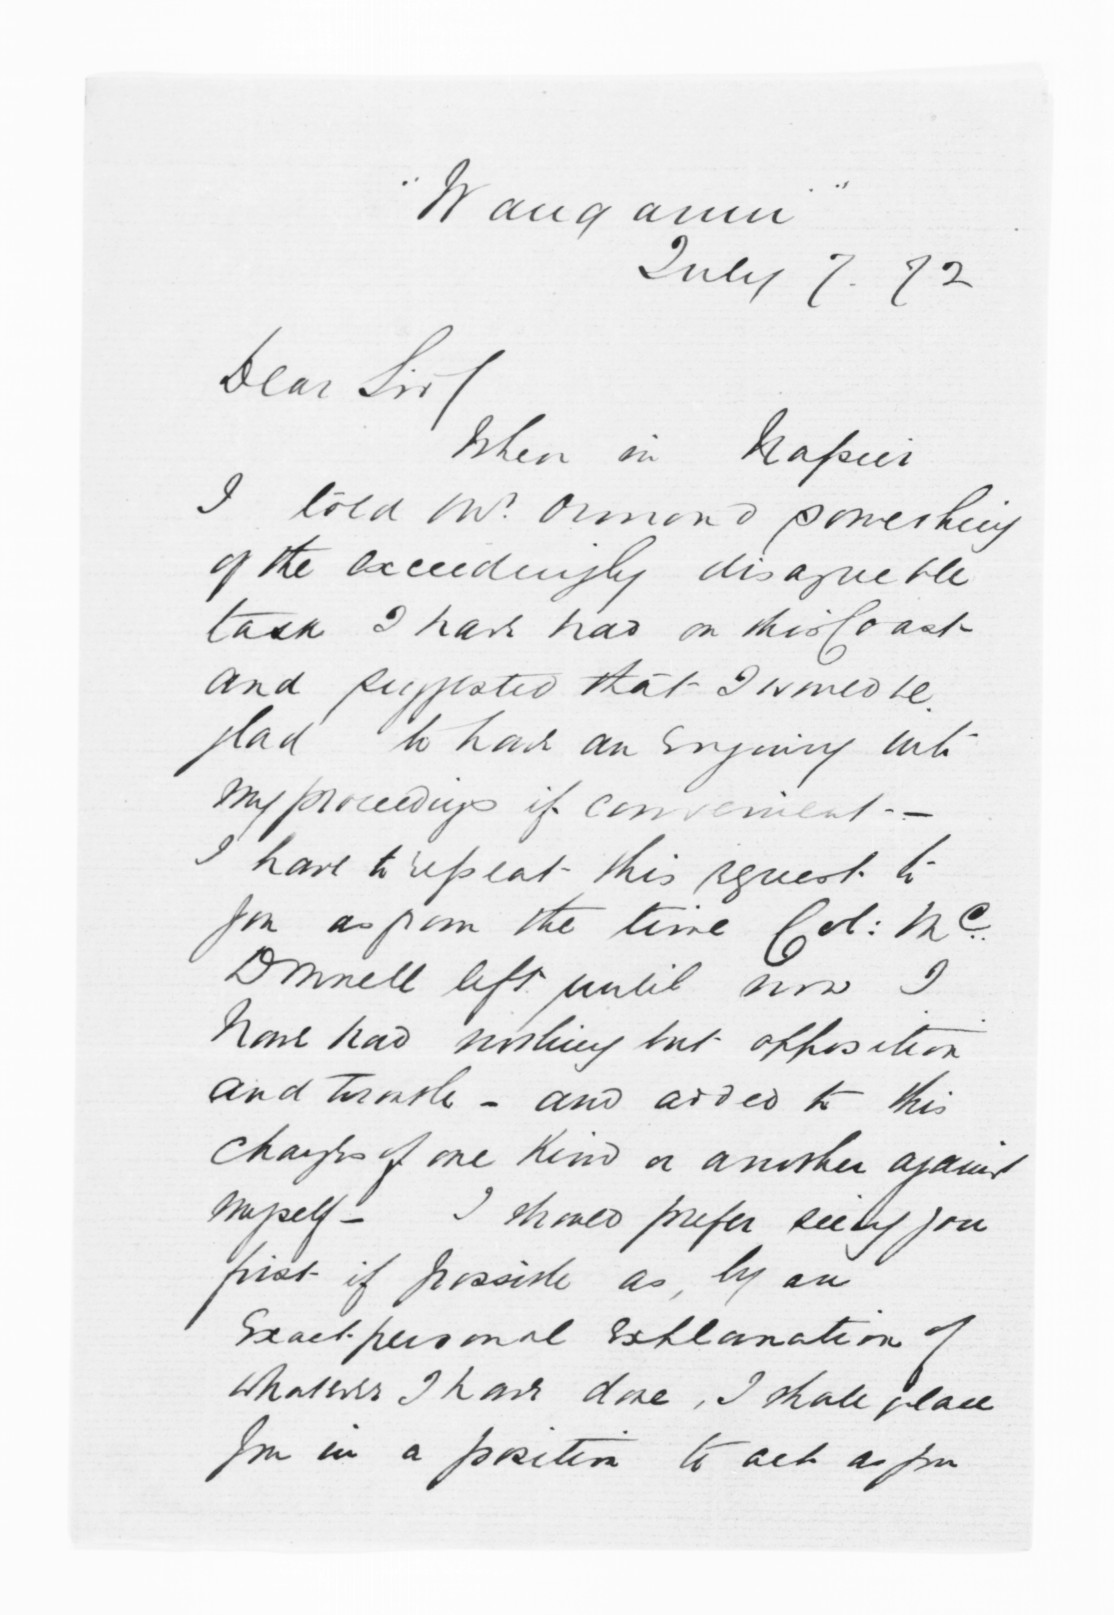 "Wanganui"
July 7. 72
Dear Sir/
When in Napier
I told Mr. Ormond something
of the exceedingly disagreeable
task I have had on this Coast
and suggested that I would be
glad to have an Enquiry into
my proceedings if convenient -
I have to repeat this request to
you as from the time Col: Mc.
Donnell left until now I
have had nothing but opposition
and trouble - and added to this
charges of one kind or another against
myself - I should prefer seeing you
first if possible as, by an
Exact personal Explanation of
whatever I have done, I shall place
you in a position to act as you